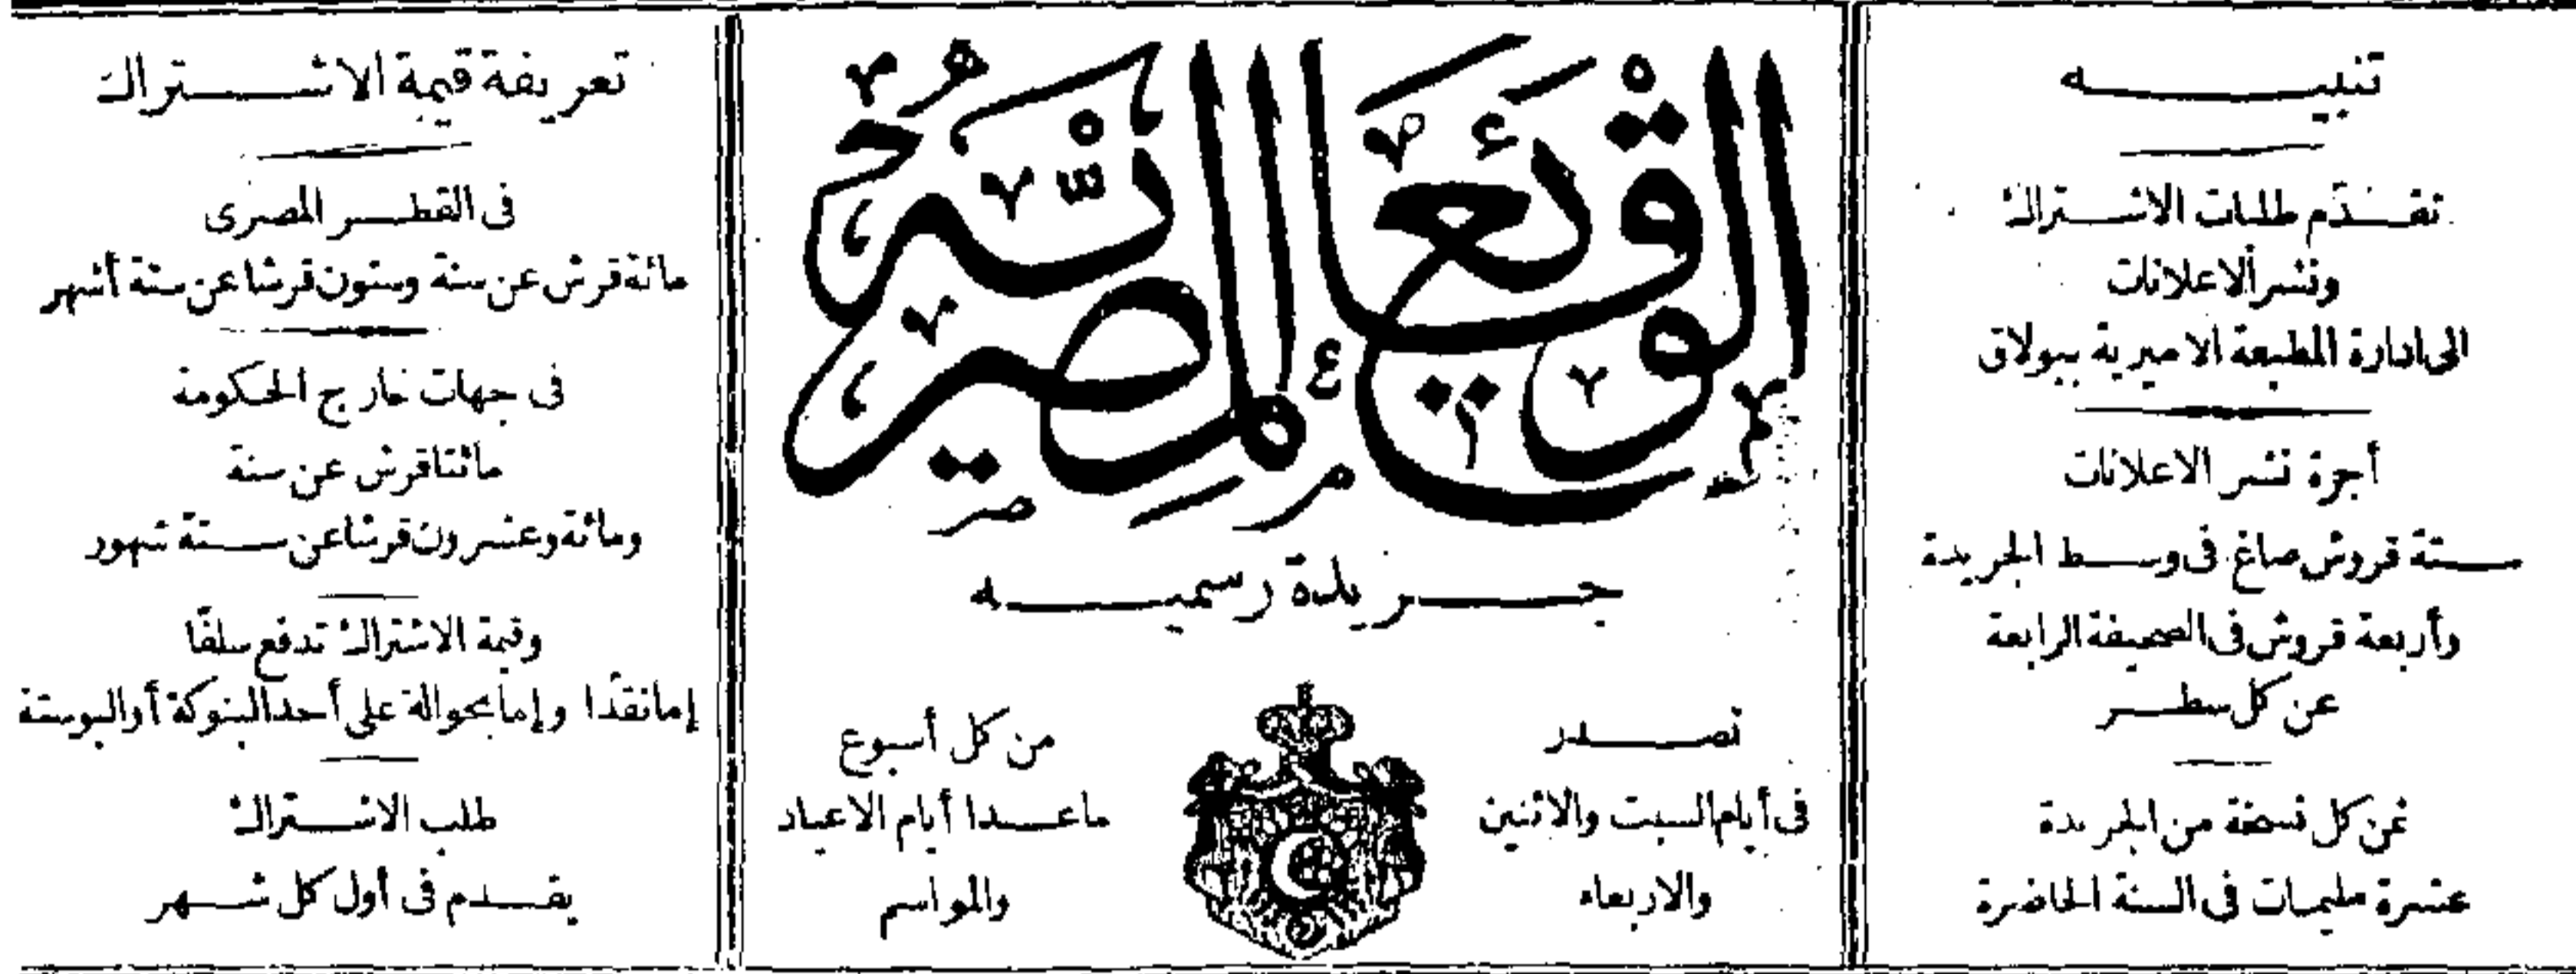 تنبيه
تقدّم طلبات الاشتراك
ونشر الاعلانات
الى ادارة المطبعة الاميرية ببولاق
أجرة نشر الاعلانات
ستة قروش صاغ فى وسط الجريدة
وأربعة قروش فى الصحيفة الرابعة
عن كل سطر
ثمن كل نسخة من الجريدة
عشرة مليمات فى السنة الحاضرة
الوقائع المصرية
جريدة رسميه
تصدر
فى أيام السبت والاثنين
والاربعاء
من كل أسبوع
ماعدا أيام الاعياد
والمواسم
تعريفة قيمة الاشتراك
فى القطر المصرى
مائة قرش عن سنة وستون قرشا عن ستة أشهر
فى جهات خارج الحكومة
مائتا قرش عن سنة
ومائة وعشرون قرشا عن ستة شهور
وقيمة الاشتراك تدفع سلفًا
إما نقدًا وإما بحوالة على أحد البنوكة أو البوستة
طلب الاشتراك
يقدم فى أول كل شهر